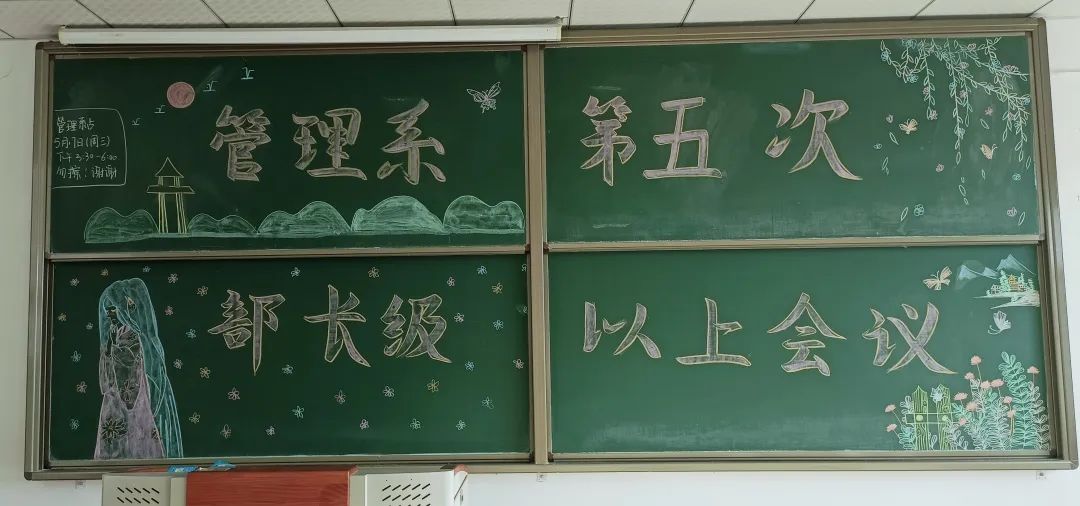 管理系占
5月7日(周三)
下午3:30-6:00
勿擦!谢谢
管理系
第五次
部长级
以上会议